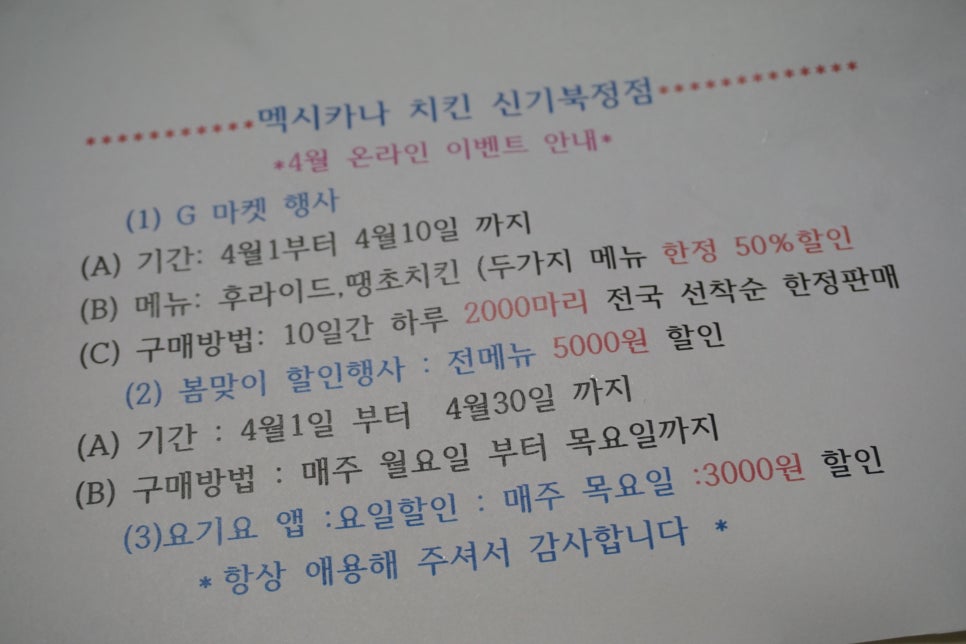 ***********멕시카나 치킨 신기북정점*************
*4월 온라인 이벤트 안내*
(1) G 마켓 행사
(A) 기간: 4월1부터 4월10일 까지
(B) 메뉴: 후라이드,땡초치킨 (두가지 메뉴 한정 50%할인
(C) 구매방법: 10일간 하루 2000마리 전국 선착순 한정판매
(2) 봄맞이 할인행사 : 전메뉴 5000원 할인
(A) 기간 : 4월1일 부터 4월30일 까지
(B) 구매방법 : 매주 월요일 부터 목요일까지
(3)요기요 앱 :요일할인 : 매주 목요일 :3000원 할인
*항상 애용해 주셔서 감사합니다 *